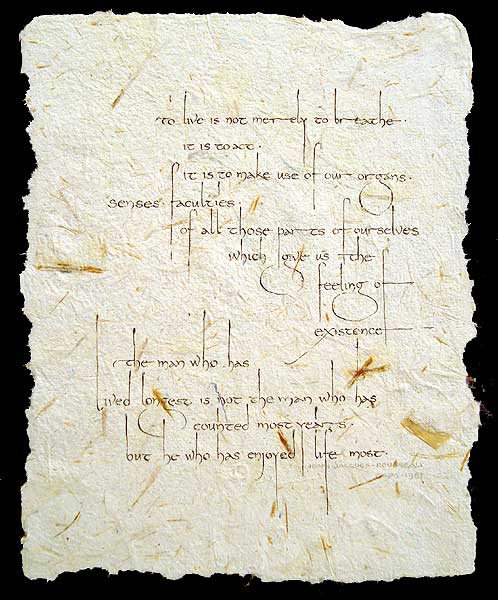 to live is not merely to breathe.
it is to act.
it is to make use of our organs.
senses. faculties.
of all those parts of ourselves
which give us the
feeling of
existence
the man who has
lived longest is not the man who has
counted most years.
but he who has enjoyed life most.
JEAN-JACQUES-ROUSSEAU